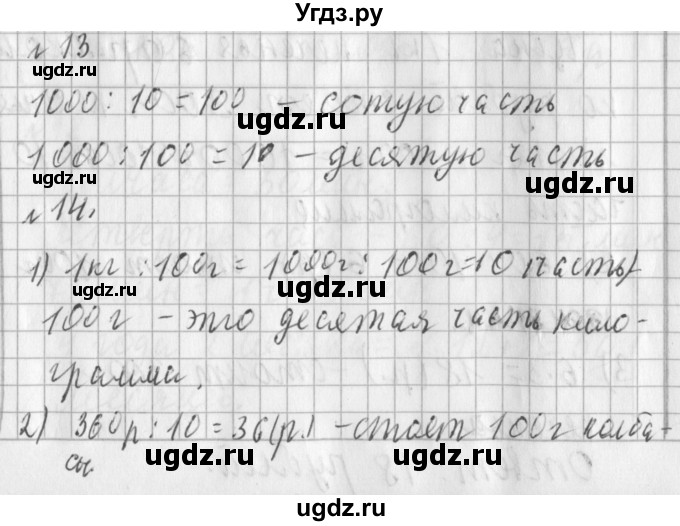 Угдз.ру
№ 13
ugdz.ru ugdz.ru
1000 : 10 = 100 – сотую часть
ugdz.ru
1000 : 100 = 10 – десятую часть
ugdz.ru
№ 14.
ugdz.ru
1) 1кг : 100г = 1000г : 100г = 10 (часть)
ugdz.ru ugdz.ru
100 г – это десятая часть кило-
грамма.
ugdz.ru
2) 360р : 10 = 36(р.) – стоят 100 г колба-
ugdz.ru
сы.
ugdz.ru ugdz.ru
Угдз.ру